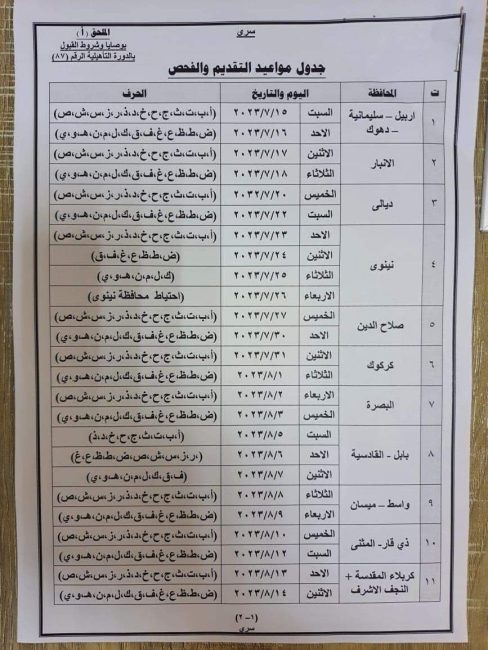 سري
الملحق (أ)
بوصايا وشروط القبول
بالدورة التأهيلية الرقم (٨٧)
جدول مواعيد التقديم والفحص
ت المحافظة اليوم والتاريخ الحرف
١ اربيل – سليمانية – دهوك السبت ٢٠٢٣/٧/١٥ (أ،ب،ت،ث،ج،ح،خ،د،ذ،ر،ز،س،ش،ص)
الاحد ٢٠٢٣/٧/١٦ (ض،ط،ظ،ع،غ،ف،ق،ك،ل،م،ن،هـ،و،ي)
٢ الانبار الاثنين ٢٠٢٣/٧/١٧ (أ،ب،ت،ث،ج،ح،خ،د،ذ،ر،ز،س،ش،ص)
الثلاثاء ٢٠٢٣/٧/١٨ (ض،ط،ظ،ع،غ،ف،ق،ك،ل،م،ن،هـ،و،ي)
٣ ديالى الخميس ٢٠٣٢/٧/٢٠ (أ،ب،ت،ث،ج،ح،خ،د،ذ،ر،ز،س،ش،ص)
السبت ٢٠٢٣/٧/٢٢ (ض،ط،ظ،ع،غ،ف،ق،ك،ل،م،ن،هـ،و،ي)
٤ نينوى الاحد ٢٠٢٣/٧/٢٣ (أ،ب،ت،ث،ج،ح،خ،د،ذ،ر،ز،س،ش،ص)
الاثنين ٢٠٢٣/٧/٢٤ (ض،ط،ظ،ع،غ،ف،ق)
الثلاثاء ٢٠٢٣/٧/٢٥ (ك،ل،م،ن،هـ،و،ي)
الاربعاء ٢٠٢٣/٧/٢٦ (احتياط محافظة نينوى)
٥ صلاح الدين الخميس ٢٠٢٣/٧/٢٧ (أ،ب،ت،ث،ج،ح،خ،د،ذ،ر،ز،س،ش،ص)
الاحد ٢٠٢٣/٧/٣٠ (ض،ط،ظ،ع،غ،ف،ق،ك،ل،م،ن،هـ،و،ي)
٦ كركوك الاثنين ٢٠٢٣/٧/٣١ (أ،ب،ت،ث،ج،ح،خ،د،ذ،ر،ز،س،ش،ص)
الثلاثاء ٢٠٢٣/٨/١ (ض،ط،ظ،ع،غ،ف،ق،ك،ل،م،ن،هـ،و،ي)
٧ البصرة الاربعاء ٢٠٢٣/٨/٢ (أ،ب،ت،ث،ج،ح،خ،د،ذ،ر،ز،س،ش،ص)
الخميس ٢٠٢٣/٨/٣ (ض،ط،ظ،ع،غ،ف،ق،ك،ل،م،ن،هـ،و،ي)
٨ بابل - القادسية السبت ٢٠٢٣/٨/٥ (أ،ب،ت،ث،ج،ح،خ،د،ذ)
الاحد ٢٠٢٣/٨/٦ (ر،ز،س،ش،ص،ض،ط،ظ،ع،غ)
الاثنين ٢٠٢٣/٨/٧ (ف،ق،ك،ل،م،ن،هـ،و،ي)
٩ واسط – ميسان الثلاثاء ٢٠٢٣/٨/٨ (أ،ب،ت،ث،ج،ح،خ،د،ذ،ر،ز،س،ش،ص)
الاربعاء ٢٠٢٣/٨/٩ (ض،ط،ظ،ع،غ،ف،ق،ك،ل،م،ن،هـ،و،ي)
١٠ ذي قار- المثنى الخميس ٢٠٢٣/٨/١٠ (أ،ب،ت،ث،ج،ح،خ،د،ذ،ر،ز،س،ش،ص)
السبت ٢٠٢٣/٨/١٢ (ض،ط،ظ،ع،غ،ف،ق،ك،ل،م،ن،هـ،و،ي)
١١ كربلاء المقدسة + النجف الاشرف الاحد ٢٠٢٣/٨/١٣ (أ،ب،ت،ث،ج،ح،خ،د،ذ،ر،ز،س،ش،ص)
الاثنين ٢٠٢٣/٨/١٤ (ض،ط،ظ،ع،غ،ف،ق،ك،ل،م،ن،هـ،و،ي)
(١-٢)
سري